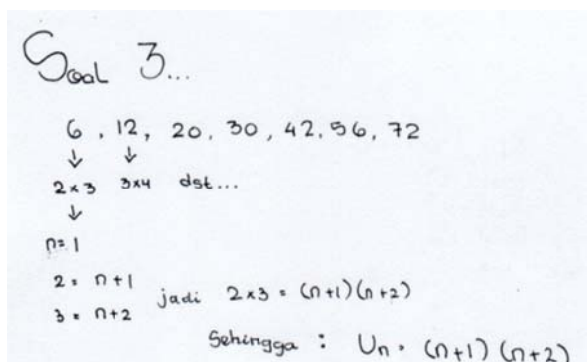 Soal 3...
6, 12, 20, 30, 42, 56, 72
↓ ↓
2×3 3×4 dst...
↓
n=1
2 = n+1
3 = n+2
jadi 2×3 = (n+1)(n+2)
Sehingga : Un = (n+1)(n+2)